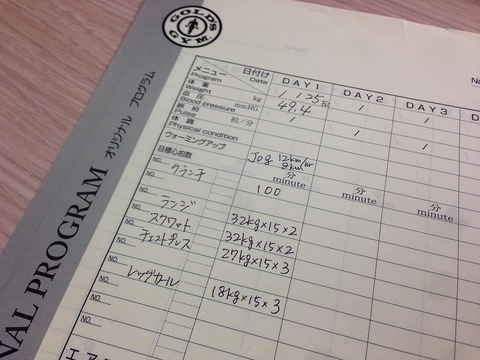 GOLD'S GYM
ORIGINAL PROGRAM オリジナル プログラム
メニュー Program 日付け Date DAY 1 DAY 2 DAY 3
体重 Weight kg 49.4
血圧 Blood pressure mmHG
脈拍 Pulse 拍/分
体調 Physical condition
ウォーミングアップ Jog 12km/hr 8km 分 minute 分 minute 分 minute
目標心拍数
NO. クランチ 100
NO.
NO. ランジ 32kg×15×2
NO. スクワット 32kg×15×2
NO. チェストプレス 27kg×15×3
NO.
NO. レッグカール 18kg×15×3
NO.
NO.
エア